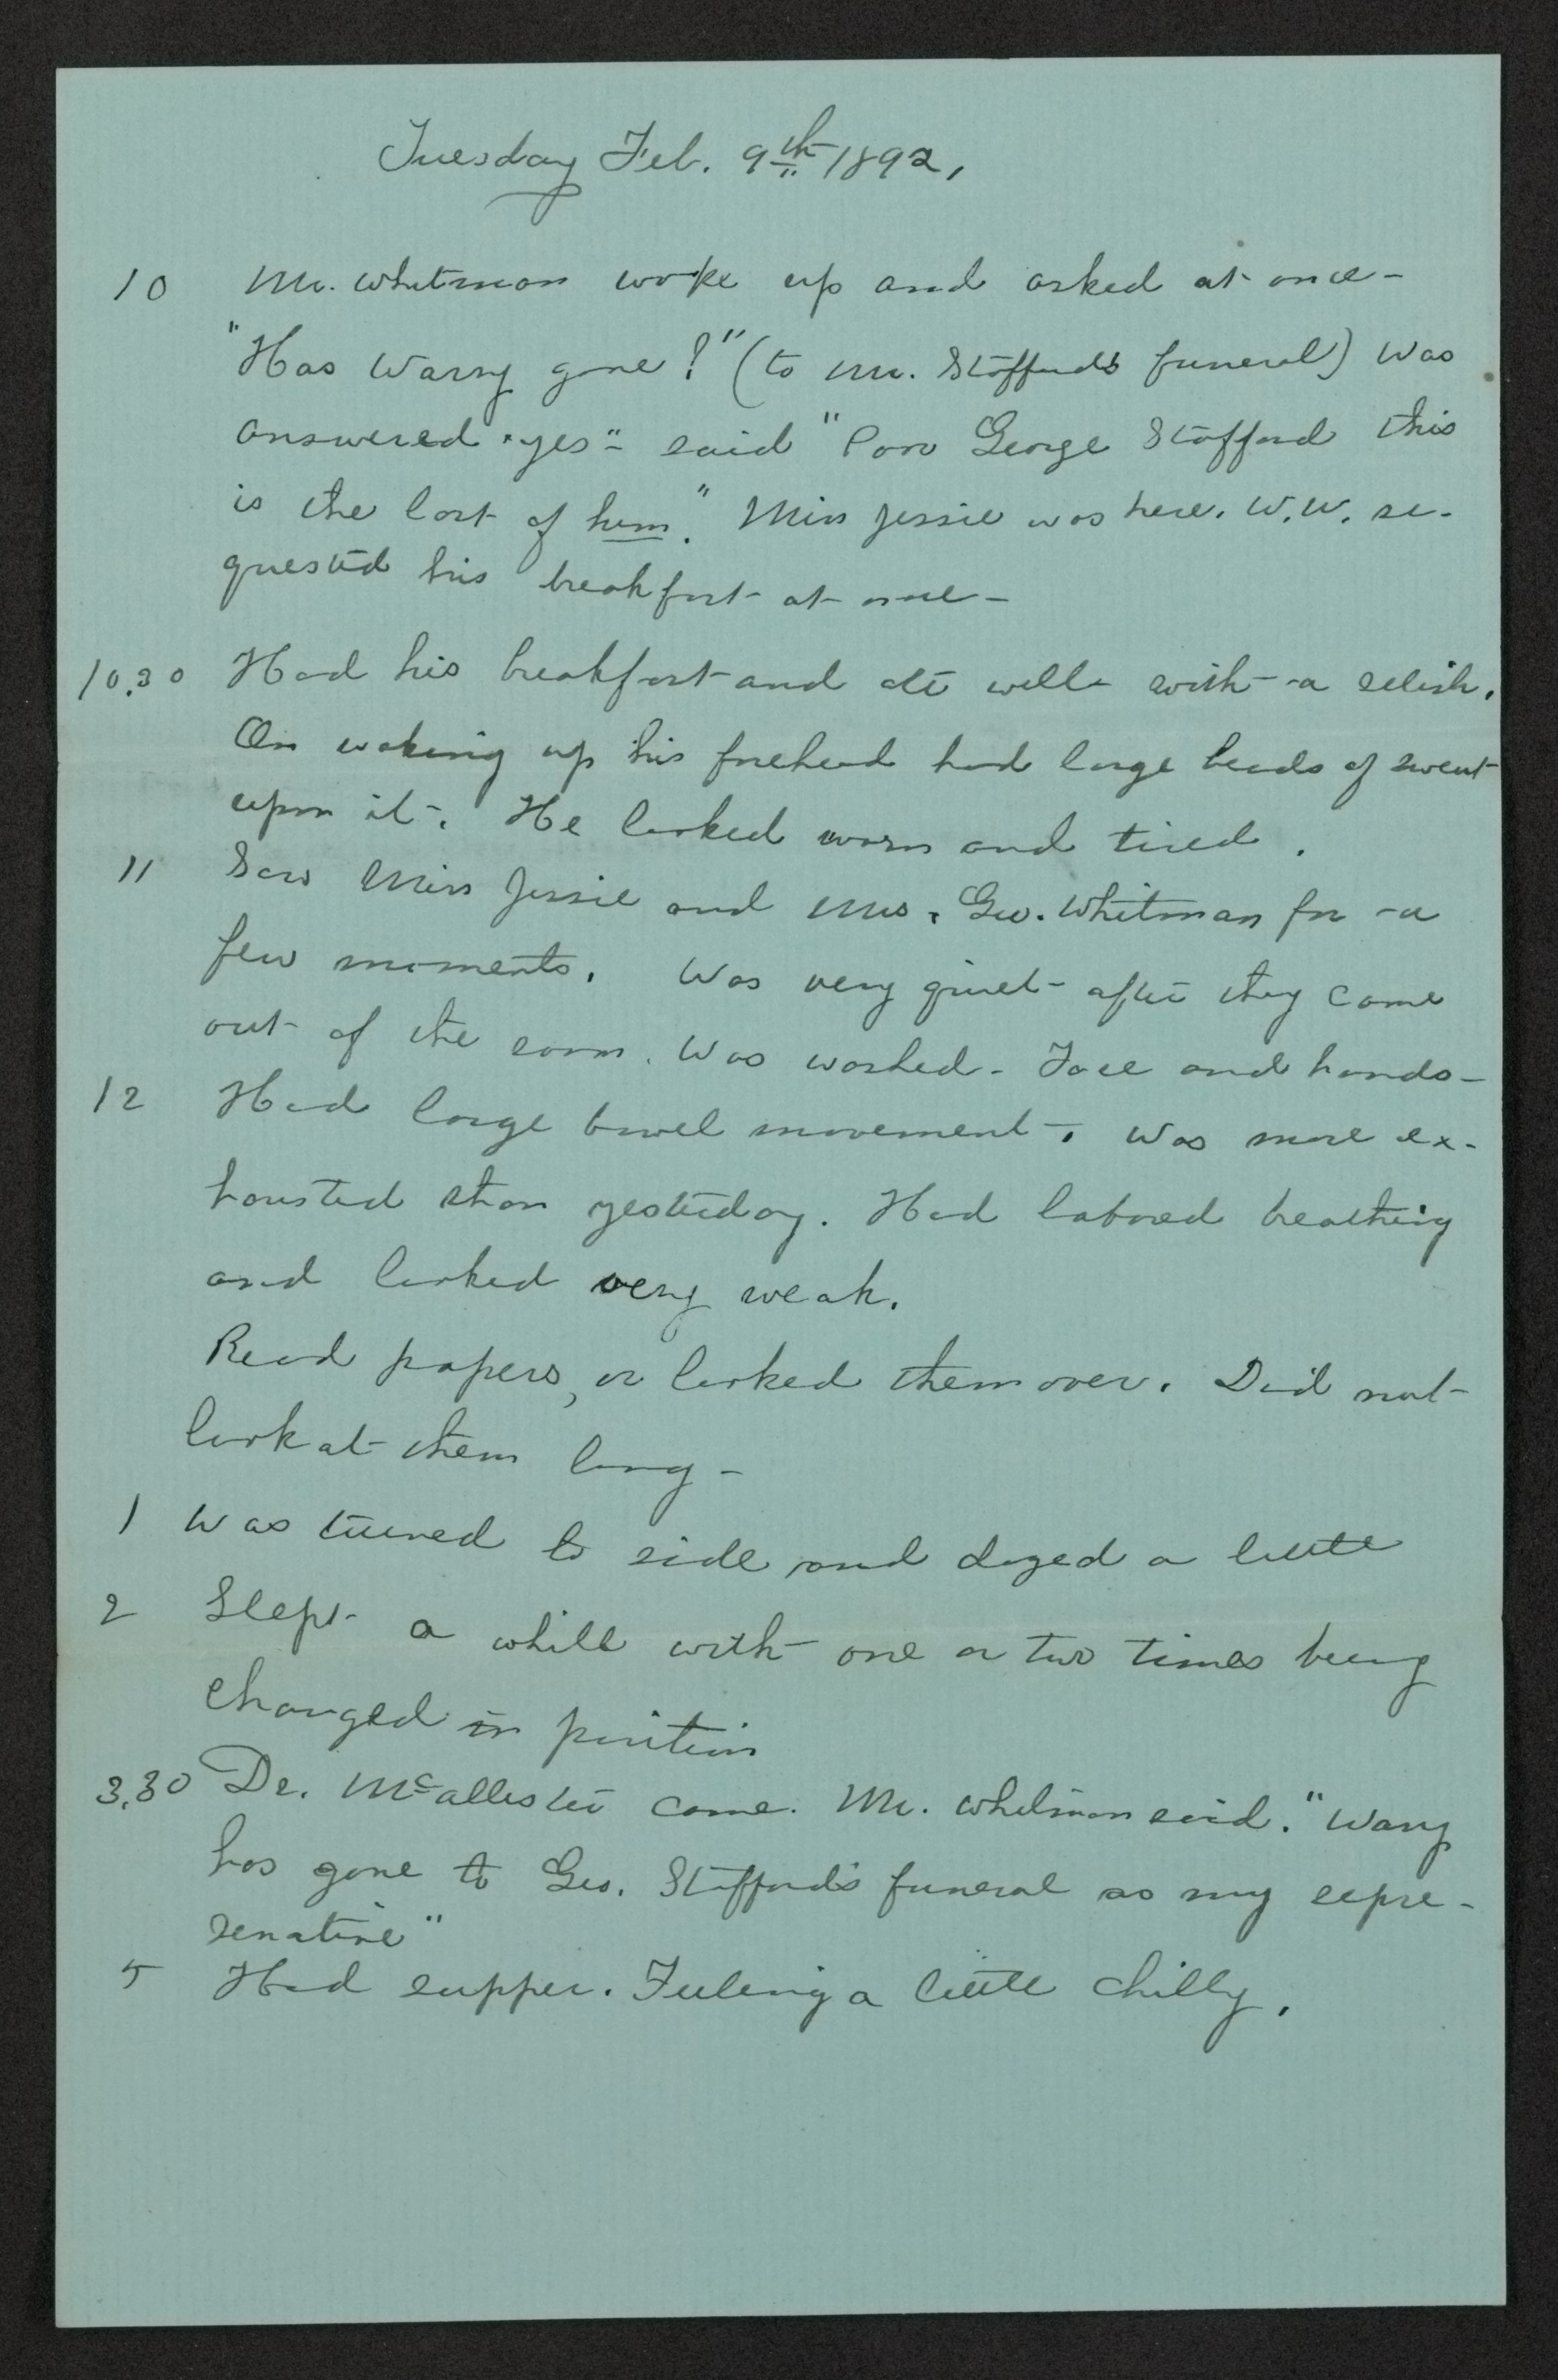 Tuesday Feb. 9th 1892,
10 Mr. Whitman woke up and asked at once -
"Has Warry gone?" (to Mr. Stafford's funeral) Was
answered "yes" - said "Poor George Stafford this
is the last of him." Miss Jessie was here. W.W. re-
quested his breakfast at once -
10.30 Had his breakfast and ate well - with a relish.
On waking up his forehead had large beads of sweat
upon it. He looked worn and tired.
11 Saw Miss Jessie and Mrs. Geo. Whitman for a
few moments. Was very quiet after they came
out of the room. Was washed - Face and hands -
12 Had large bowel movement. Was more ex-
hausted than yesterday. Had labored breathing
and looked very weak.
Read papers, or looked them over. Did not
look at them long -
1 Was turned to side and dozed a little
2 Slept a while with one or two times being
changed in position
3.30 Dr. McAllister came. Mr. Whitman said. "Warry
has gone to Geo. Stafford's funeral as my repre-
senative"
5 Had supper. Feeling a little chilly.